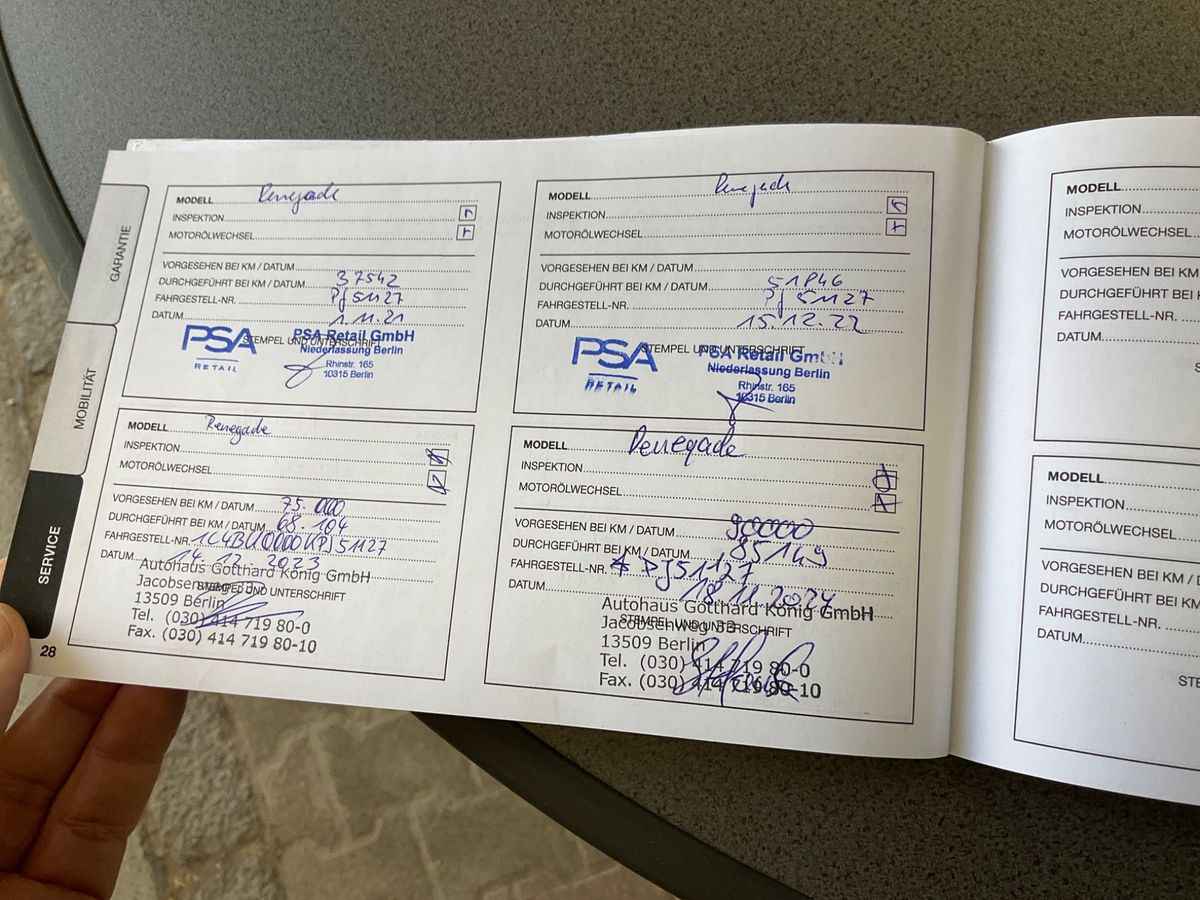 GARANTIE
MOBILITÄT
SERVICE
28
MODELL Renegade
INSPEKTION
MOTORÖLWECHSEL
VORGESEHEN BEI KM / DATUM
DURCHGEFÜHRT BEI KM / DATUM 37542
FAHRGESTELL-NR. PJ51127
DATUM 1.11.21
STEMPEL UND UNTERSCHRIFT
PSA RETAIL
PSA Retail GmbH
Niederlassung Berlin
Rhinstr. 165
10315 Berlin
MODELL Renegade
INSPEKTION
MOTORÖLWECHSEL
VORGESEHEN BEI KM / DATUM
DURCHGEFÜHRT BEI KM / DATUM
FAHRGESTELL-NR. PJ51127
DATUM 15.12.22
STEMPEL UND UNTERSCHRIFT
PSA RETAIL
PSA Retail GmbH
Niederlassung Berlin
Rhinstr. 165
10315 Berlin
MODELL Renegade
INSPEKTION
MOTORÖLWECHSEL
VORGESEHEN BEI KM / DATUM 75.000
DURCHGEFÜHRT BEI KM / DATUM 68.104
FAHRGESTELL-NR.
DATUM 14.12.2023
STEMPEL UND UNTERSCHRIFT
Autohaus Gotthard König GmbH
13509 Berlin
Tel. (030) 414 719 80-0
Fax. (030) 414 719 80-10
MODELL Renegade
INSPEKTION
MOTORÖLWECHSEL
VORGESEHEN BEI KM / DATUM 90000
DURCHGEFÜHRT BEI KM / DATUM 85149
FAHRGESTELL-NR. PJ51127
DATUM 18.11.2024
STEMPEL UND UNTERSCHRIFT
Autohaus Gotthard König GmbH
Jacobsenweg 33
13509 Berlin
Tel. (030) 414 719 80-0
Fax. (030) 414 719 80-10
MODELL
INSPEKTION
MOTORÖLWECHSEL
VORGESEHEN BEI KM
DURCHGEFÜHRT BEI K
FAHRGESTELL-NR.
DATUM
S
MODELL
INSPEKTION
MOTORÖLWECHSEL
VORGESEHEN BEI KM
DURCHGEFÜHRT BEI
FAHRGESTELL-NR.
DATUM
STE